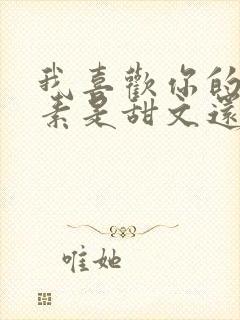 我喜歡你的
素是甜文還
唯她